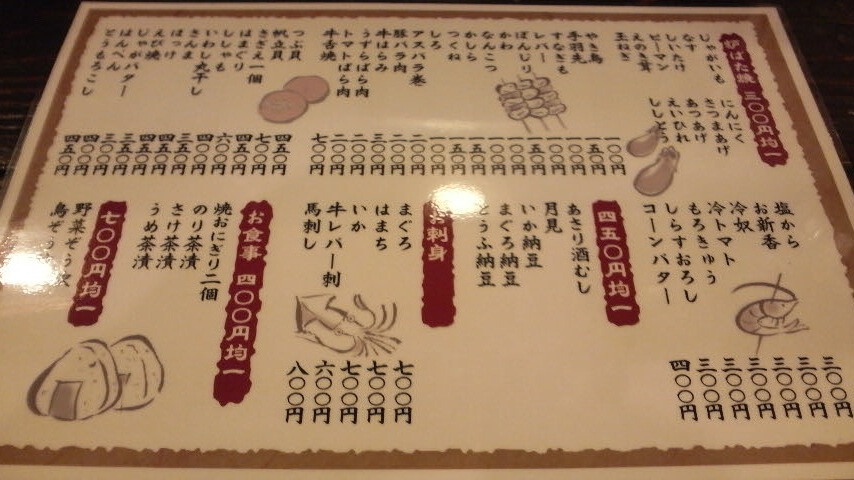 炉ばた焼 三〇〇円均一
じゃがいも
なす
しいたけ
ピーマン
えのき茸
玉ねぎ
にんにく
さつまあげ
あつあげ
えいひれ
ししとう
やき鳥 一〇〇円
手羽先 一五〇円
すなぎも 一〇〇円
レバー 一〇〇円
ぼんじり 一〇〇円
かわ 一〇〇円
なんこつ 一〇〇円
かしら 一五〇円
つくね 一五〇円
しろ 一〇〇円
アスパラ巻 二〇〇円
豚バラ肉 二〇〇円
牛はらみ 三〇〇円
うずらばら肉 二〇〇円
トマトばら肉 二〇〇円
牛舌焼 七〇〇円
つぶ貝 四五〇円
帆立貝 七〇〇円
さざえ一個 四五〇円
はまぐり 六〇〇円
ししゃも 四〇〇円
いわし丸干し 三五〇円
さんま 四五〇円
ほっけ 四五〇円
えび焼 三五〇円
じゃがバター 三〇〇円
はんぺん 四〇〇円
とうもろこし 四五〇円
塩から 三〇〇円
お新香 三〇〇円
冷奴 三〇〇円
冷トマト 三〇〇円
もろきゅう 三〇〇円
しらすおろし 三〇〇円
コーンバター 四〇〇円
四五〇円均一
あさり酒むし
月見
いか納豆
まぐろ納豆
とうふ納豆
お刺身
まぐろ 七〇〇円
はまち 七〇〇円
いか 七〇〇円
牛レバー刺 六〇〇円
馬刺し 八〇〇円
お食事 四〇〇円均一
焼おにぎり二個
のり茶漬
さけ茶漬
うめ茶漬
七〇〇円均一
野菜ぞう炊
鳥ぞう